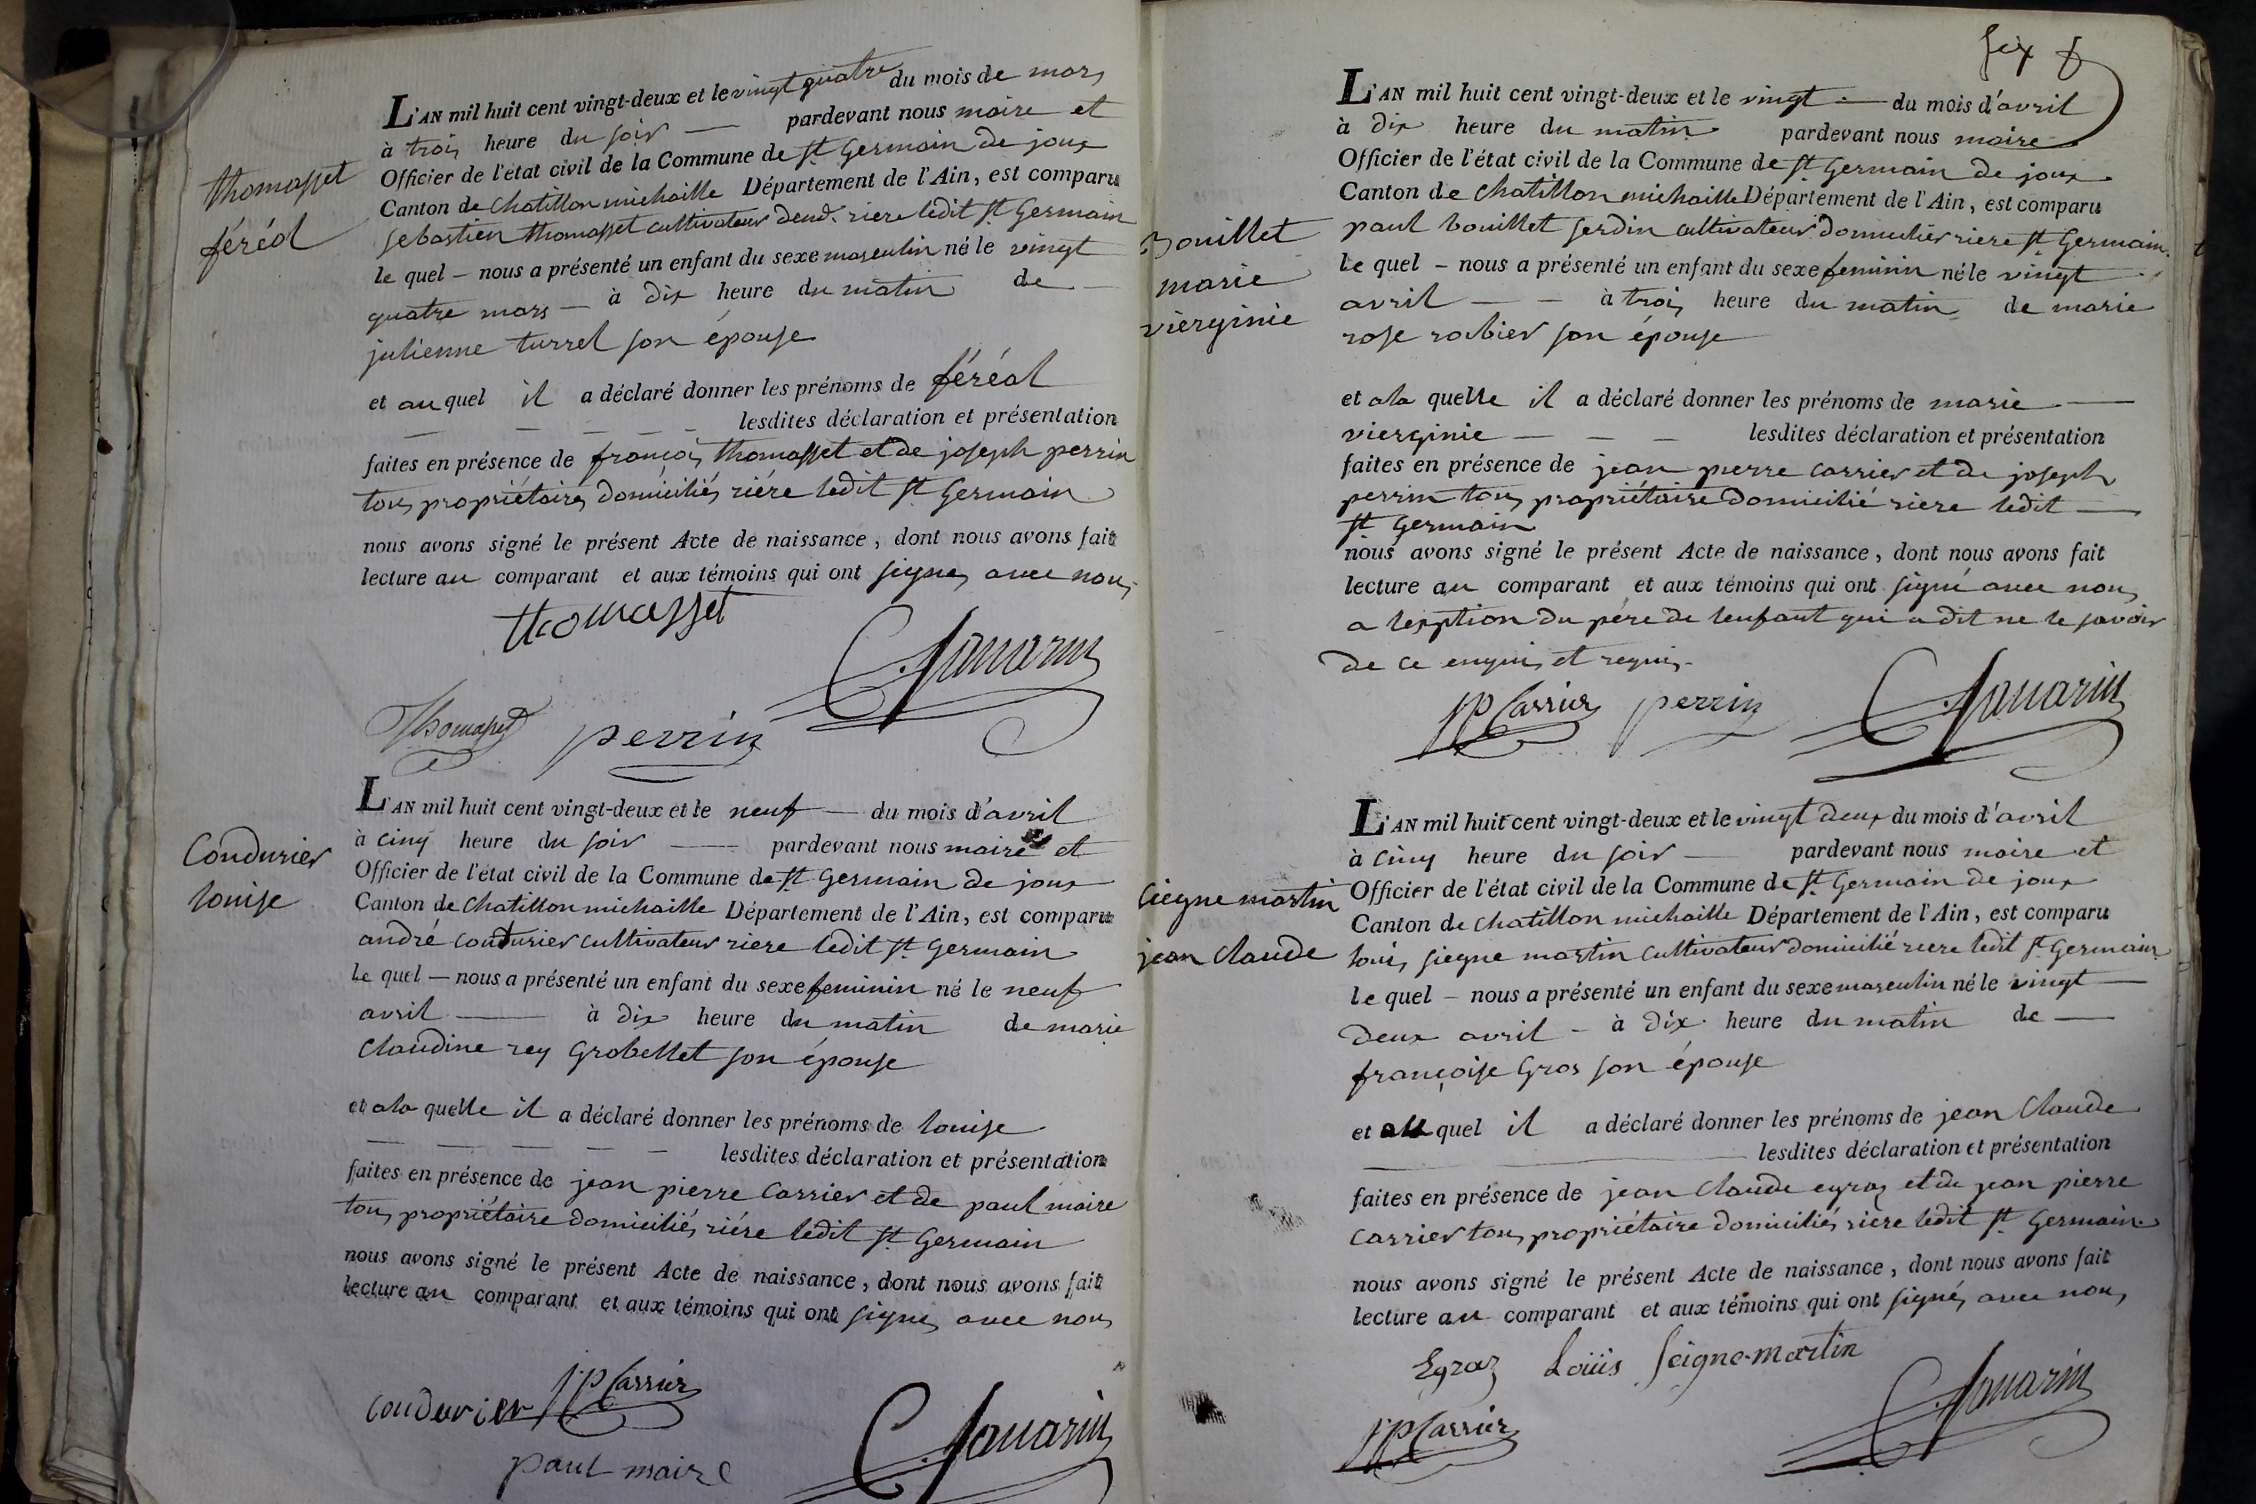 thomasset
féréol
L'AN mil huit cent vingt-deux et le vingt quatre du mois de mars
à trois heure du soir — pardevant nous maire et
Officier de l'état civil de la Commune de St Germain de joux
Canton de Chatillon michaille Département de l'Ain, est comparu
sebastien thomasset cultivateur riere ledit St Germain
le quel – nous a présenté un enfant du sexe masculin né le vingt
quatre mars — à dix heure du matin de —
julienne turrel son épouse
et au quel il a déclaré donner les prénoms de féréol
— — — — — lesdites déclaration et présentation
faites en présence de françois thomasset et de joseph perrin
tous propriétaires domiciliés riére ledit St Germain
nous avons signé le présent Acte de naissance, dont nous avons fait
lecture au comparant et aux témoins qui ont signes avec nous
thomasset
Thomasset perrin
Condurier
louise
L'AN mil huit cent vingt-deux et le neuf — du mois d'avril
à cinq heure du soir — pardevant nous maire et
Officier de l'état civil de la Commune de St Germain de joux
Canton de Chatillon michaille Département de l'Ain, est comparu
andré condurier cultivateur riere ledit St Germain
le quel — nous a présenté un enfant du sexe feminin né le neuf
avril — à dix heure du matin de marie
Claudine rey Grobellet son épouse
et a la quelle il a déclaré donner les prénoms de louise
— — — — — lesdites déclaration et présentation
faites en présence de jean pierre Carrier et de paul maire
tous propriétaire domiciliés riére ledit St Germain
nous avons signé le présent Acte de naissance, dont nous avons fait
lecture au comparant et aux témoins qui ont signes avec nous
condurier JP Carrier
paul maire
Bouillet
marie
vierginie
L'AN mil huit cent vingt-deux et le vingt — du mois d'avril
à dix heure du matin pardevant nous maire
Officier de l'état civil de la Commune de St Germain de joux
Canton de Chatillon michaille Département de l'Ain, est comparu
paul bouillet serdin cultivateur domicilier riere St Germain
le quel – nous a présenté un enfant du sexe feminin né le vingt
avril — — à trois heure du matin de marie
rose rorbier son épouse
et a la quelle il a déclaré donner les prénoms de marie —
vierginie — — — lesdites déclaration et présentation
faites en présence de jean pierre carrier et de joseph
perrin tous propriétaire domicilié riere ledit —
St Germain
nous avons signé le présent Acte de naissance, dont nous avons fait
lecture au comparant et aux témoins qui ont signé avec nous
a lexption du pére de lenfant qui a dit ne le savoir
de ce enquis et requis
JP Carrier perrin
Ciegne martin
jean Claude
L'AN mil huit cent vingt-deux et le vingt deux du mois d'avril
à cinq heure du soir — pardevant nous maire et
Officier de l'état civil de la Commune de St Germain de joux
Canton de Chatillon michaille Département de l'Ain, est comparu
louis siegne martin cultivateur domicilié riere ledit St Germain
le quel – nous a présenté un enfant du sexe masculin né le vingt —
deux avril – à dix heure du matin de —
françoise Gros son épouse
et au quel il a déclaré donner les prénoms de jean Claude
— lesdites déclaration et présentation
faites en présence de jean Claude egraz et de jean pierre
Carrier tous propriétaire domiciliés riere ledit St Germain
nous avons signé le présent Acte de naissance, dont nous avons fait
lecture au comparant et aux témoins qui ont signés avec nous
Egraz Loüis Seigne-martin
JP Carrier